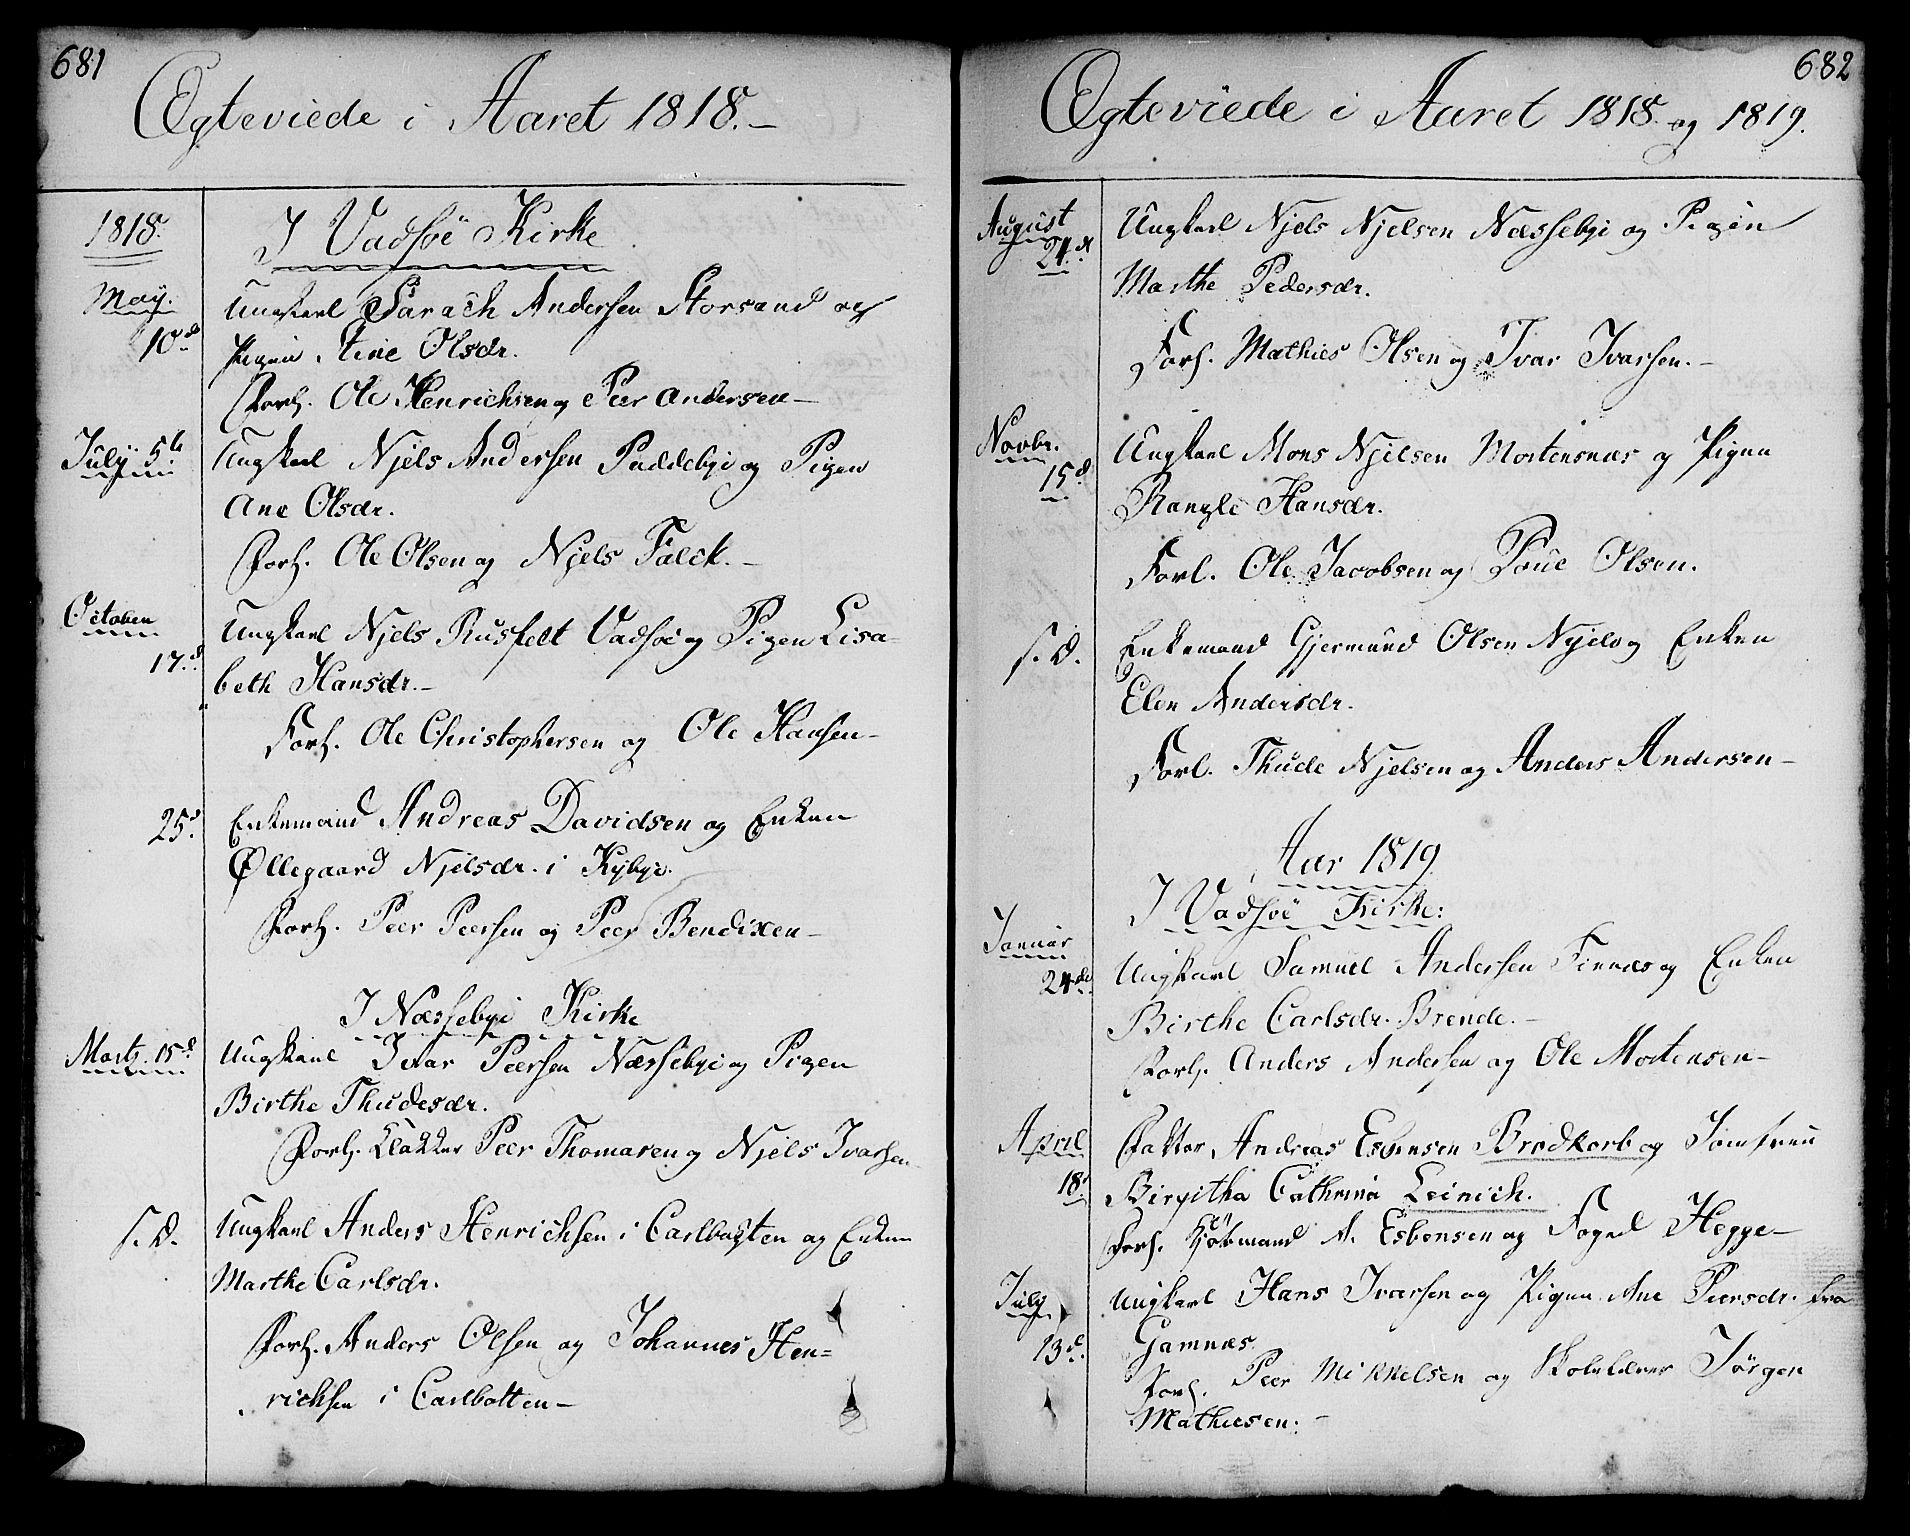 681
Ægteviede i Aaret 1818.-
1818.
I Vadsöe Kirke
May.
10.d
Ungkarl Sarach Andersen Storsand og
Pigen Stine Olsdr.
Forl. Ole Henrichsen og Peer Andersen-
July. 5te
Ungkarl Njels Andersen Paddebye og Pigen
Ane Olsdr.
Forl. Ole Olsen og Njels Falck.-
October
17.d
Ungkarl Njels Rusfelt Vadsöe og Pigen Lisa-
beth Hansdr.-
Forl. Ole Christophersen og Ole Hansen-
25.d
Enkemand Andreas Davidsen og Enken
Øllegaard Njelsdr. i Kybye.
Forl. Peer Peersen og Peer Bendixen-
I Næssebye Kirke
Marts. 15.d
Ungkarl Ivar Peersen Næssebye og Pigen
Birthe Thudesdr.
Forl. Klokker Peer Thomasen og Njels Ivarsen
s. d.
Ungkarl Anders Henrichsen i Carlbotten og Enken
Marthe Carlsdr.
Forl. Anders Olsen og Johannes Hen=
richsen i Carlbotten-
682
Ægteviede i Aaret 1818. og 1819.
August
24.d
Ungkarl Njels Njelsen Næssebye og Pigen
Marthe Pedersdr.
Forl. Mathies Olsen og Ivar Ivarsen.-
Novbr.
15.d
Ungkarl Mons Njelsen Mortensnæs og Pigen
Rangle Hansdr.
Forl. Ole Jacobsen og Poue Olsen.
s. d.
Enkemand Gjermund Olsen og Enken
Elen Andersdr.
Forl. Thude Njelsen og Anders Andersen-
Aar 1819
I Vadsöe Kirke:
Januar
24.de
Ungkarl Samuel Andersen Finnæs og Enken
Birthe Carlsdr. Brende.-
Forl. Anders Andersen og Ole Mortensen-
April
18.
Faktor Andreas Esbensen Brodkorb og Jomfrue
Birgitha Cathrina Leinich.
Forl. Kjöbmand A. Esbensen og Foged Hegge-
July
13.d
Ungkarl Hans Ivarsen og Pigen Ane Peersdr. fra
Gamnæs.
Forl. Peer Mikkelsen og Skolelærer Jörgen
Mathiesen:-